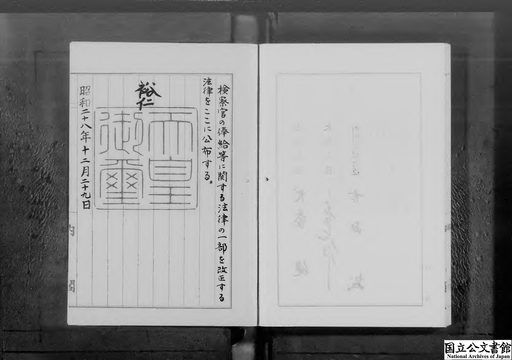 検察官の俸給等に関する法律の一部を改正する
法律をここに公布する。
裕仁
天皇
御璽
昭和二十八年十二月二十九日
国立公文書館
National Archives of Japan